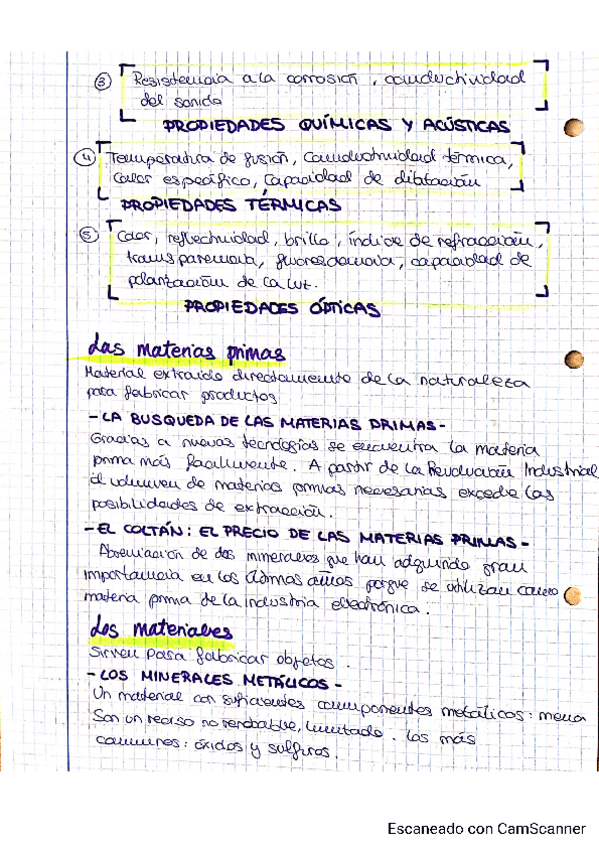 ③ Resistencia a la corrosión, conductividad
del sonido
PROPIEDADES QUÍMICAS Y ACÚSTICAS
④ Temperatura de fusión, Conductividad térmica,
Calor específico, Capacidad de dilatación
PROPIEDADES TÉRMICAS
⑤ Color, reflectividad, brillo, índice de refracción,
transparencia, fluorescencia, capacidad de
polarización de la luz.
PROPIEDADES ÓPTICAS
Las materias primas
Material extraído directamente de la naturaleza
para fabricar productos
- LA BUSQUEDA DE LAS MATERIAS PRIMAS -
Gracias a nuevas tecnologías se encuentra la materia
prima más facilmente. A partir de la Revolución Industrial
el volumen de materias primas necesarias excede las
posibilidades de extracción.
- EL COLTÁN: EL PRECIO DE LAS MATERIAS PRIMAS -
Abreviación de dos minerales que han adquirido gran
importancia en los últimos años porque se utilizan como
materia prima de la industria electrónica.
Los materiales
Sirven para fabricar objetos.
- LOS MINERALES METÁLICOS -
Un material con suficientes componentes metálicos: mena
Son un recurso no renovable, limitado. Los más
comunes: óxidos y sulfuros.
Escaneado con CamScanner